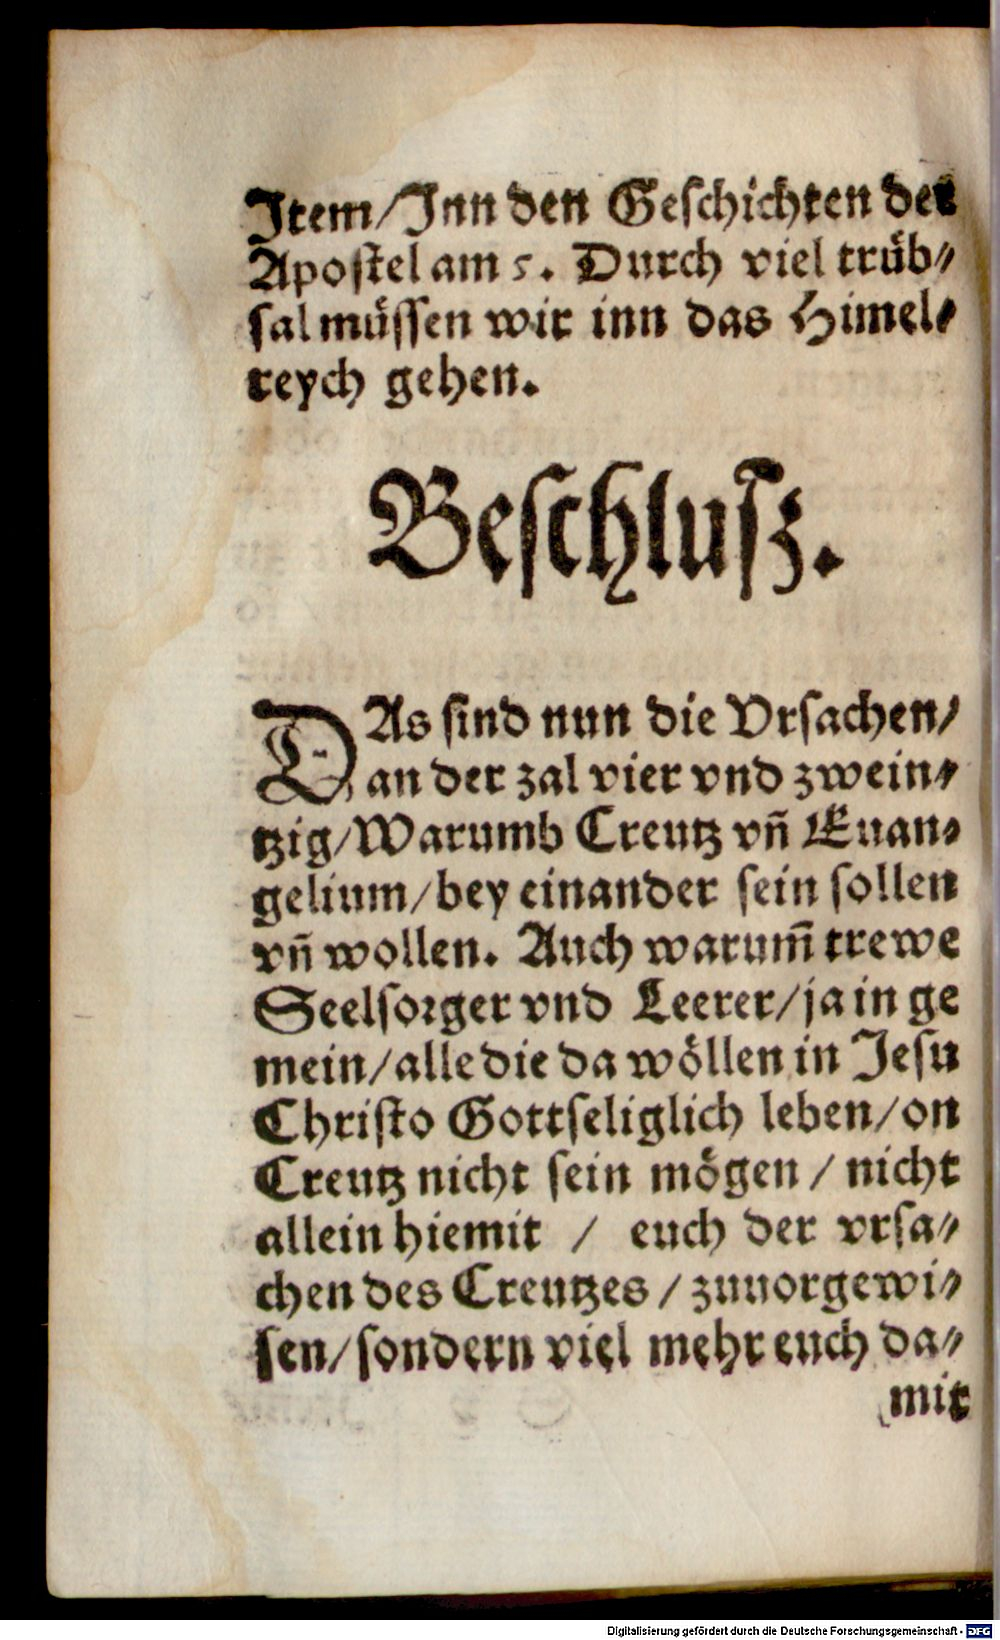 Item/Inn den Geſchichten der
Apoſtel am 5. Durch viel trüb⸗
ſal müſſen wir inn das Himel⸗
reych gehen.
Beſchluſz.
DAs ſind nun die Vrſachen/
an der zal vier vnd zwein⸗
tzig/Warumb Creutz vñ Euan⸗
gelium/bey einander ſein ſollen
vñ wollen. Auch warum̃ trewe
Seelſorger vnd Leerer/ja in ge
mein/alle die da wöllen in Jeſu
Chriſto Gottſeliglich leben/on
Creutz nicht ſein mögen / nicht
allein hiemit / euch der vrſa⸗
chen des Creutzes / zuuorgewi⸗
ſen/ſondern viel mehr euch da⸗
mit
Digitalisierung gefördert durch die Deutsche Forschungsgemeinschaft - DFG